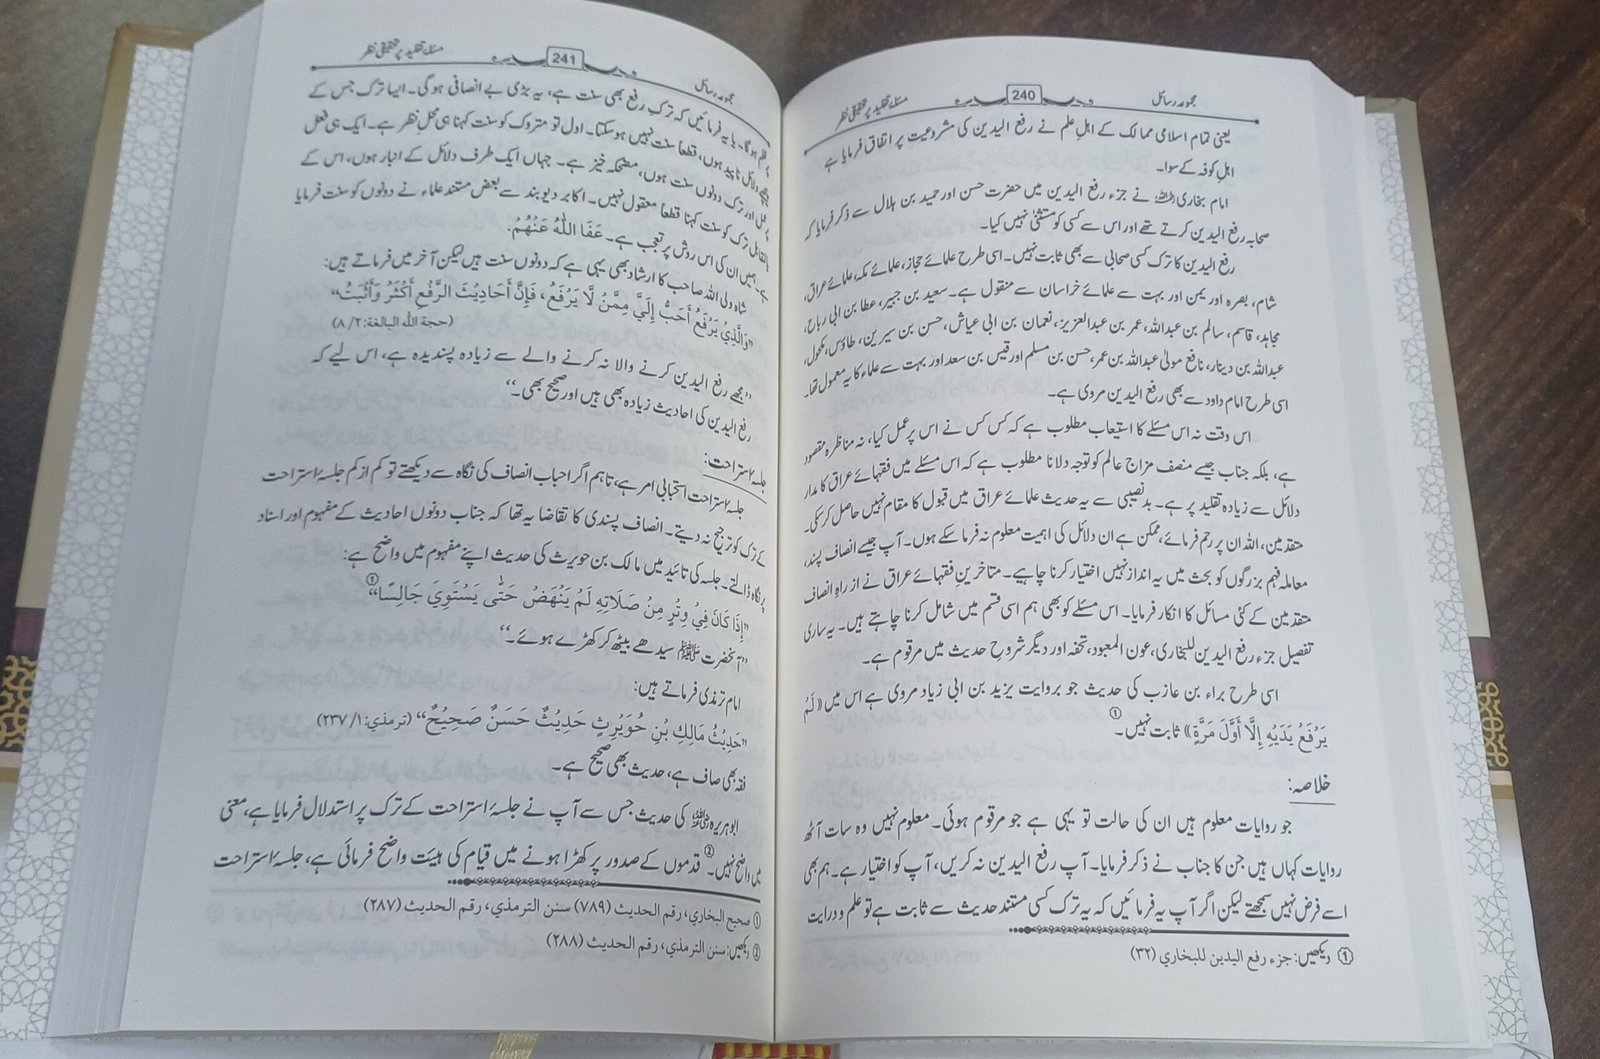 مجموعہ رسائل
240
مسئلہ تقلید پر تحقیقی نظر
یعنی تمام اسلامی ممالک کے اہلِ علم نے رفع الیدین کی مشروعیت پر اتفاق فرمایا ہے
اہلِ کوفہ کے سوا۔
امام بخاری رحمہ اللہ نے جزء رفع الیدین میں حضرت حسن اور حمید بن ہلال سے ذکر فرمایا کہ
صحابہ رفع الیدین کرتے تھے اور اس سے کسی کو مستثنیٰ نہیں کیا۔
رفع الیدین کا ترک کسی صحابی سے بھی ثابت نہیں۔ اسی طرح علمائے حجاز، علمائے مکہ، علمائے عراق،
شام، بصرہ اور یمن اور بہت سے علمائے خراسان سے منقول ہے۔ سعید بن جبیر، عطا بن ابی رباح،
مجاہد، قاسم، سالم بن عبداللہ، عمر بن عبدالعزیز، نعمان بن ابی عیاش، حسن بن سیرین، طاؤس، مکحول،
عبداللہ بن دینار، نافع مولیٰ عبداللہ بن عمر، حسن بن مسلم اور قیس بن سعد اور بہت سے علماء کا یہ معمول تھا۔
اسی طرح امام داود سے بھی رفع الیدین مروی ہے۔
اس وقت نہ اس مسئلے کا استیعاب مطلوب ہے کہ کس کس نے اس پر عمل کیا، نہ مناظرہ مقصود
ہے، بلکہ جناب جیسے منصف مزاج عالم کو توجہ دلانا مطلوب ہے کہ اس مسئلے میں فقہائے عراق کا مدار
دلائل سے زیادہ تقلید پر ہے۔ بدنصیبی سے یہ حدیث علمائے عراق میں قبول کا مقام نہیں حاصل کر سکی۔
متقدمین، اللہ ان پر رحم فرمائے، ممکن ہے ان دلائل کی اہمیت معلوم نہ فرما سکے ہوں۔ آپ جیسے انصاف پسند،
معاملہ فہم بزرگوں کو بحث میں یہ انداز نہیں اختیار کرنا چاہیے۔ متاخرینِ فقہائے عراق نے از راہِ انصاف
متقدمین کے کئی مسائل کا انکار فرمایا۔ اس مسئلے کو بھی ہم اسی قسم میں شامل کرنا چاہتے ہیں۔ یہ ساری
تفصیل جزء رفع الیدین للبخاری، عون المعبود، تحفہ اور دیگر شروحِ حدیث میں مرقوم ہے۔
اسی طرح براء بن عازب کی حدیث جو بروایت یزید بن ابی زیاد مروی ہے اس میں «لَمْ
يَرْفَعْ يَدَيْهِ إِلَّا أَوَّلَ مَرَّةٍ» ثابت نہیں۔①
خلاصہ:
جو روایات معلوم ہیں ان کی حالت تو یہی ہے جو مرقوم ہوئی۔ معلوم نہیں وہ سات آٹھ
روایات کہاں ہیں جن کا جناب نے ذکر فرمایا۔ آپ رفع الیدین نہ کریں، آپ کو اختیار ہے۔ ہم بھی
اسے فرض نہیں سمجھتے لیکن اگر آپ یہ فرمائیں کہ یہ ترک کسی مستند حدیث سے ثابت ہے تو علم و درایت
① دیکھیں: جزء رفع اليدين للبخاري (٣٢)
مجموعہ رسائل
241
مسئلہ تقلید پر تحقیقی نظر
پر ظلم ہوگا۔ یا یہ فرمائیں کہ ترک رفع بھی سنت ہے، یہ بڑی بے انصافی ہوگی۔ ایسا ترک جس کے
پیچھے دلائل ناپید ہوں، قطعاً سنت نہیں ہوسکتا۔ اول تو متروک کو سنت کہنا ہی محلِ نظر ہے۔ ایک ہی فعل
پر عمل اور ترک دونوں سنت ہوں، مضحکہ خیز ہے۔ جہاں ایک طرف دلائل کے انبار ہوں، اس کے
بالمقابل ترک کو سنت کہنا قطعاً معقول نہیں۔ اکابر دیوبند سے بعض مستند علماء نے دونوں کو سنت فرمایا
ہے۔ ہمیں ان کی اس روش پر تعجب ہے۔ عَفَا اللّٰهُ عَنْهُمْ.
شاہ ولی اللہ صاحب کا ارشاد بھی یہی ہے کہ دونوں سنت ہیں لیکن آخر میں فرماتے ہیں:
”وَالَّذِيْ يَرْفَعُ أَحَبُّ إِلَيَّ مِمَّنْ لَّا يَرْفَعُ، فَإِنَّ أَحَادِيْثَ الرَّفْعِ أَكْثَرُ وَأَثْبَتُ“
(حجة الله البالغة: ٢/ ٨)
”مجھے رفع الیدین کرنے والا نہ کرنے والے سے زیادہ پسندیدہ ہے، اس لیے کہ
رفع الیدین کی احادیث زیادہ بھی ہیں اور صحیح بھی۔“
جلسۂ استراحت:
جلسۂ استراحت استحبابی امر ہے، تاہم اگر احباب انصاف کی نگاہ سے دیکھتے تو کم از کم جلسۂ استراحت
کے ترک کو ترجیح نہ دیتے۔ انصاف پسندی کا تقاضا یہ تھا کہ جناب دونوں احادیث کے مفہوم اور اسناد
پر نگاہ ڈالتے۔ جلسہ کی تائید میں مالک بن حویرث کی حدیث اپنے مفہوم میں واضح ہے:
”إِذَا كَانَ فِيْ وِتْرٍ مِنْ صَلَاتِهِ لَمْ يَنْهَضْ حَتّٰى يَسْتَوِيَ جَالِسًا“①
”آنحضرت ﷺ سیدھے بیٹھ کر کھڑے ہوئے۔“
امام ترمذی فرماتے ہیں:
”حَدِيْثُ مَالِكِ بْنِ حُوَيْرِثٍ حَدِيْثٌ حَسَنٌ صَحِيْحٌ“ (ترمذی: ١/ ٢٣٧)
فقہ بھی صاف ہے، حدیث بھی صحیح ہے۔
ابوہریرہ رضی اللہ عنہ کی حدیث جس سے آپ نے جلسۂ استراحت کے ترک پر استدلال فرمایا ہے، معنی
میں واضح نہیں۔② قدموں کے صدور پر کھڑا ہونے میں قیام کی ہیئت واضح فرمائی ہے، جلسۂ استراحت
① صحيح البخاري، رقم الحديث (٧٨٩) سنن الترمذي، رقم الحديث (٢٨٧)
② دیکھیں: سنن الترمذي، رقم الحديث (٢٨٨)